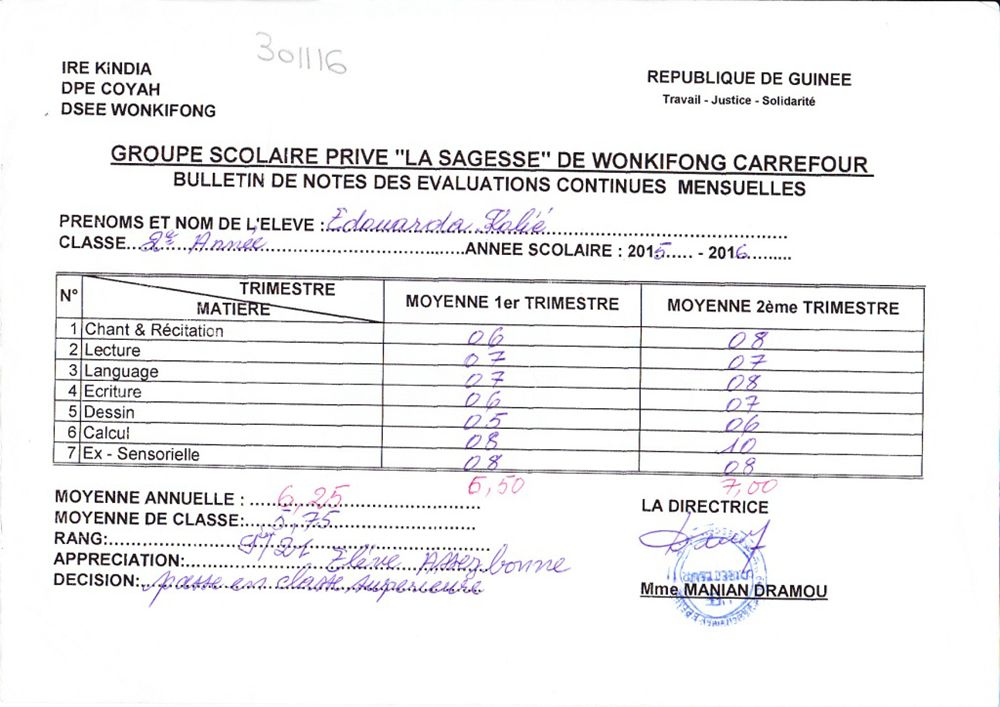 301116
IRE KiNDIA
DPE COYAH
DSEE WONKIFONG
REPUBLIQUE DE GUINEE
Travail - Justice - Solidarité
GROUPE SCOLAIRE PRIVE "LA SAGESSE" DE WONKIFONG CARREFOUR
BULLETIN DE NOTES DES EVALUATIONS CONTINUES MENSUELLES
PRENOMS ET NOM DE L'ELEVE : Edouarda Kolié
CLASSE... 2è Année ... ANNEE SCOLAIRE : 2015..... - 2016.........
N° TRIMESTRE MATIERE MOYENNE 1er TRIMESTRE MOYENNE 2ème TRIMESTRE
1 Chant & Récitation 06 08
2 Lecture 07 07
3 Language 07 08
4 Ecriture 06 07
5 Dessin 05 06
6 Calcul 08 10
7 Ex - Sensorielle 08 08
5,50 7,00
MOYENNE ANNUELLE : 6,25
MOYENNE DE CLASSE: 5,75
RANG: /21
APPRECIATION: Elève Assez bonne
DECISION: passe en classe supérieure
LA DIRECTRICE
Mme MANIAN DRAMOU